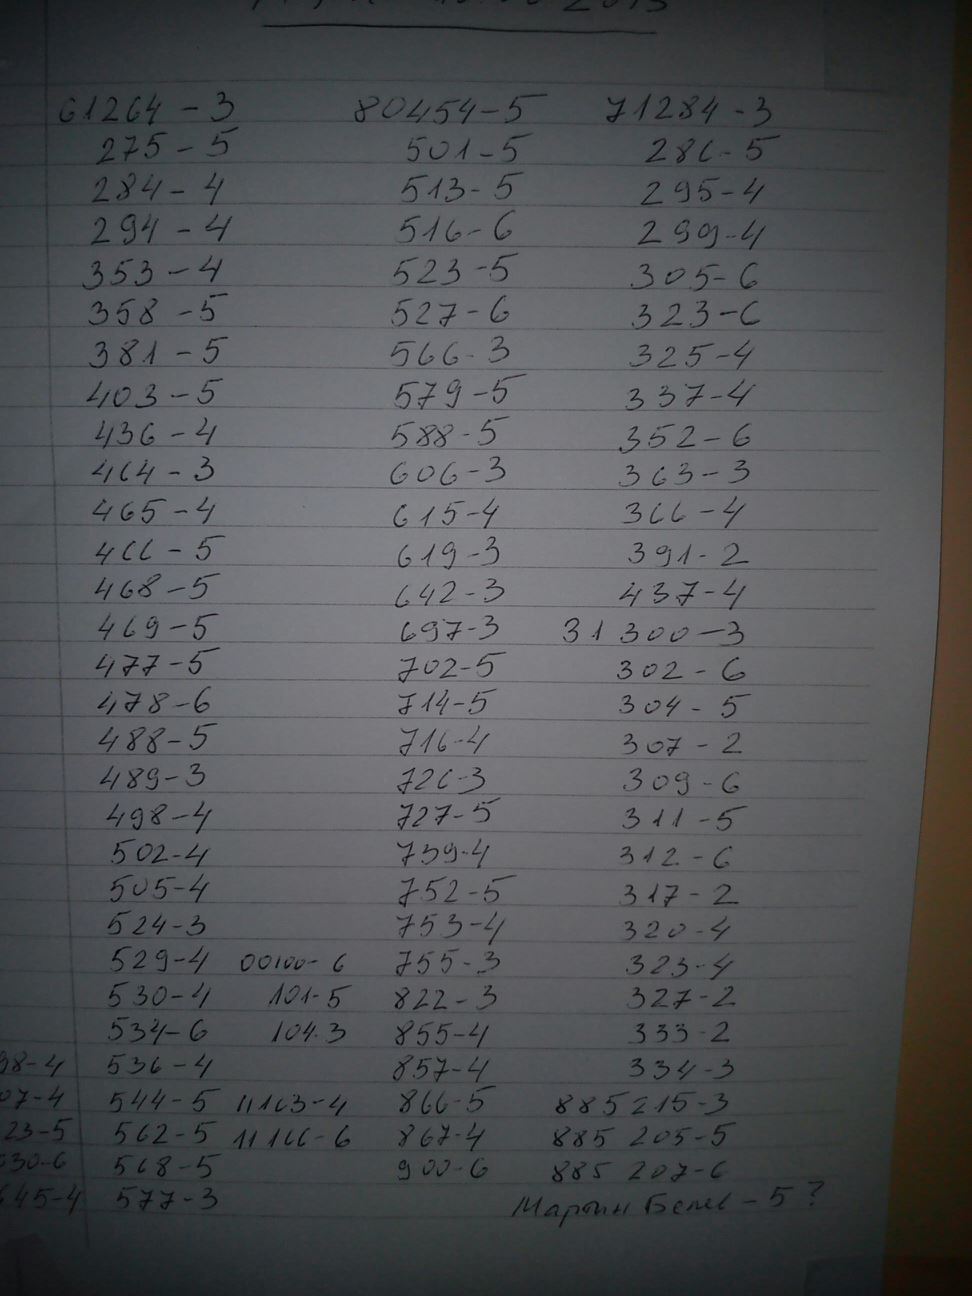 61264 - 3 80454 - 5 71284 - 3
275 - 5 501 - 5 286 - 5
284 - 4 513 - 5 295 - 4
294 - 4 516 - 6 299 - 4
353 - 4 523 - 5 305 - 6
358 - 5 527 - 6 323 - 6
381 - 5 566 - 3 325 - 4
403 - 5 579 - 5 337 - 4
436 - 4 588 - 5 352 - 6
464 - 3 606 - 3 363 - 3
465 - 4 615 - 4 366 - 4
466 - 5 619 - 3 391 - 2
468 - 5 642 - 3 437 - 4
469 - 5 697 - 3 31300 - 3
477 - 5 702 - 5 302 - 6
478 - 6 714 - 5 304 - 5
488 - 5 716 - 4 307 - 2
489 - 3 726 - 3 309 - 6
498 - 4 727 - 5 311 - 5
502 - 4 739 - 4 312 - 6
505 - 4 752 - 5 317 - 2
524 - 3 753 - 4 320 - 4
529 - 4 00100 - 6 755 - 3 323 - 4
530 - 4 101 - 5 822 - 3 327 - 2
534 - 6 104. 3 855 - 4 333 - 2
98 - 4 536 - 4 857 - 4 334 - 3
07 - 4 544 - 5 11163 - 4 866 - 5 885 215 - 3
23 - 5 562 - 5 11166 - 6 867 - 4 885 205 - 5
30 - 6 568 - 5 900 - 6 885 207 - 6
645 - 4 577 - 3 Мартин Белев - 5 ?